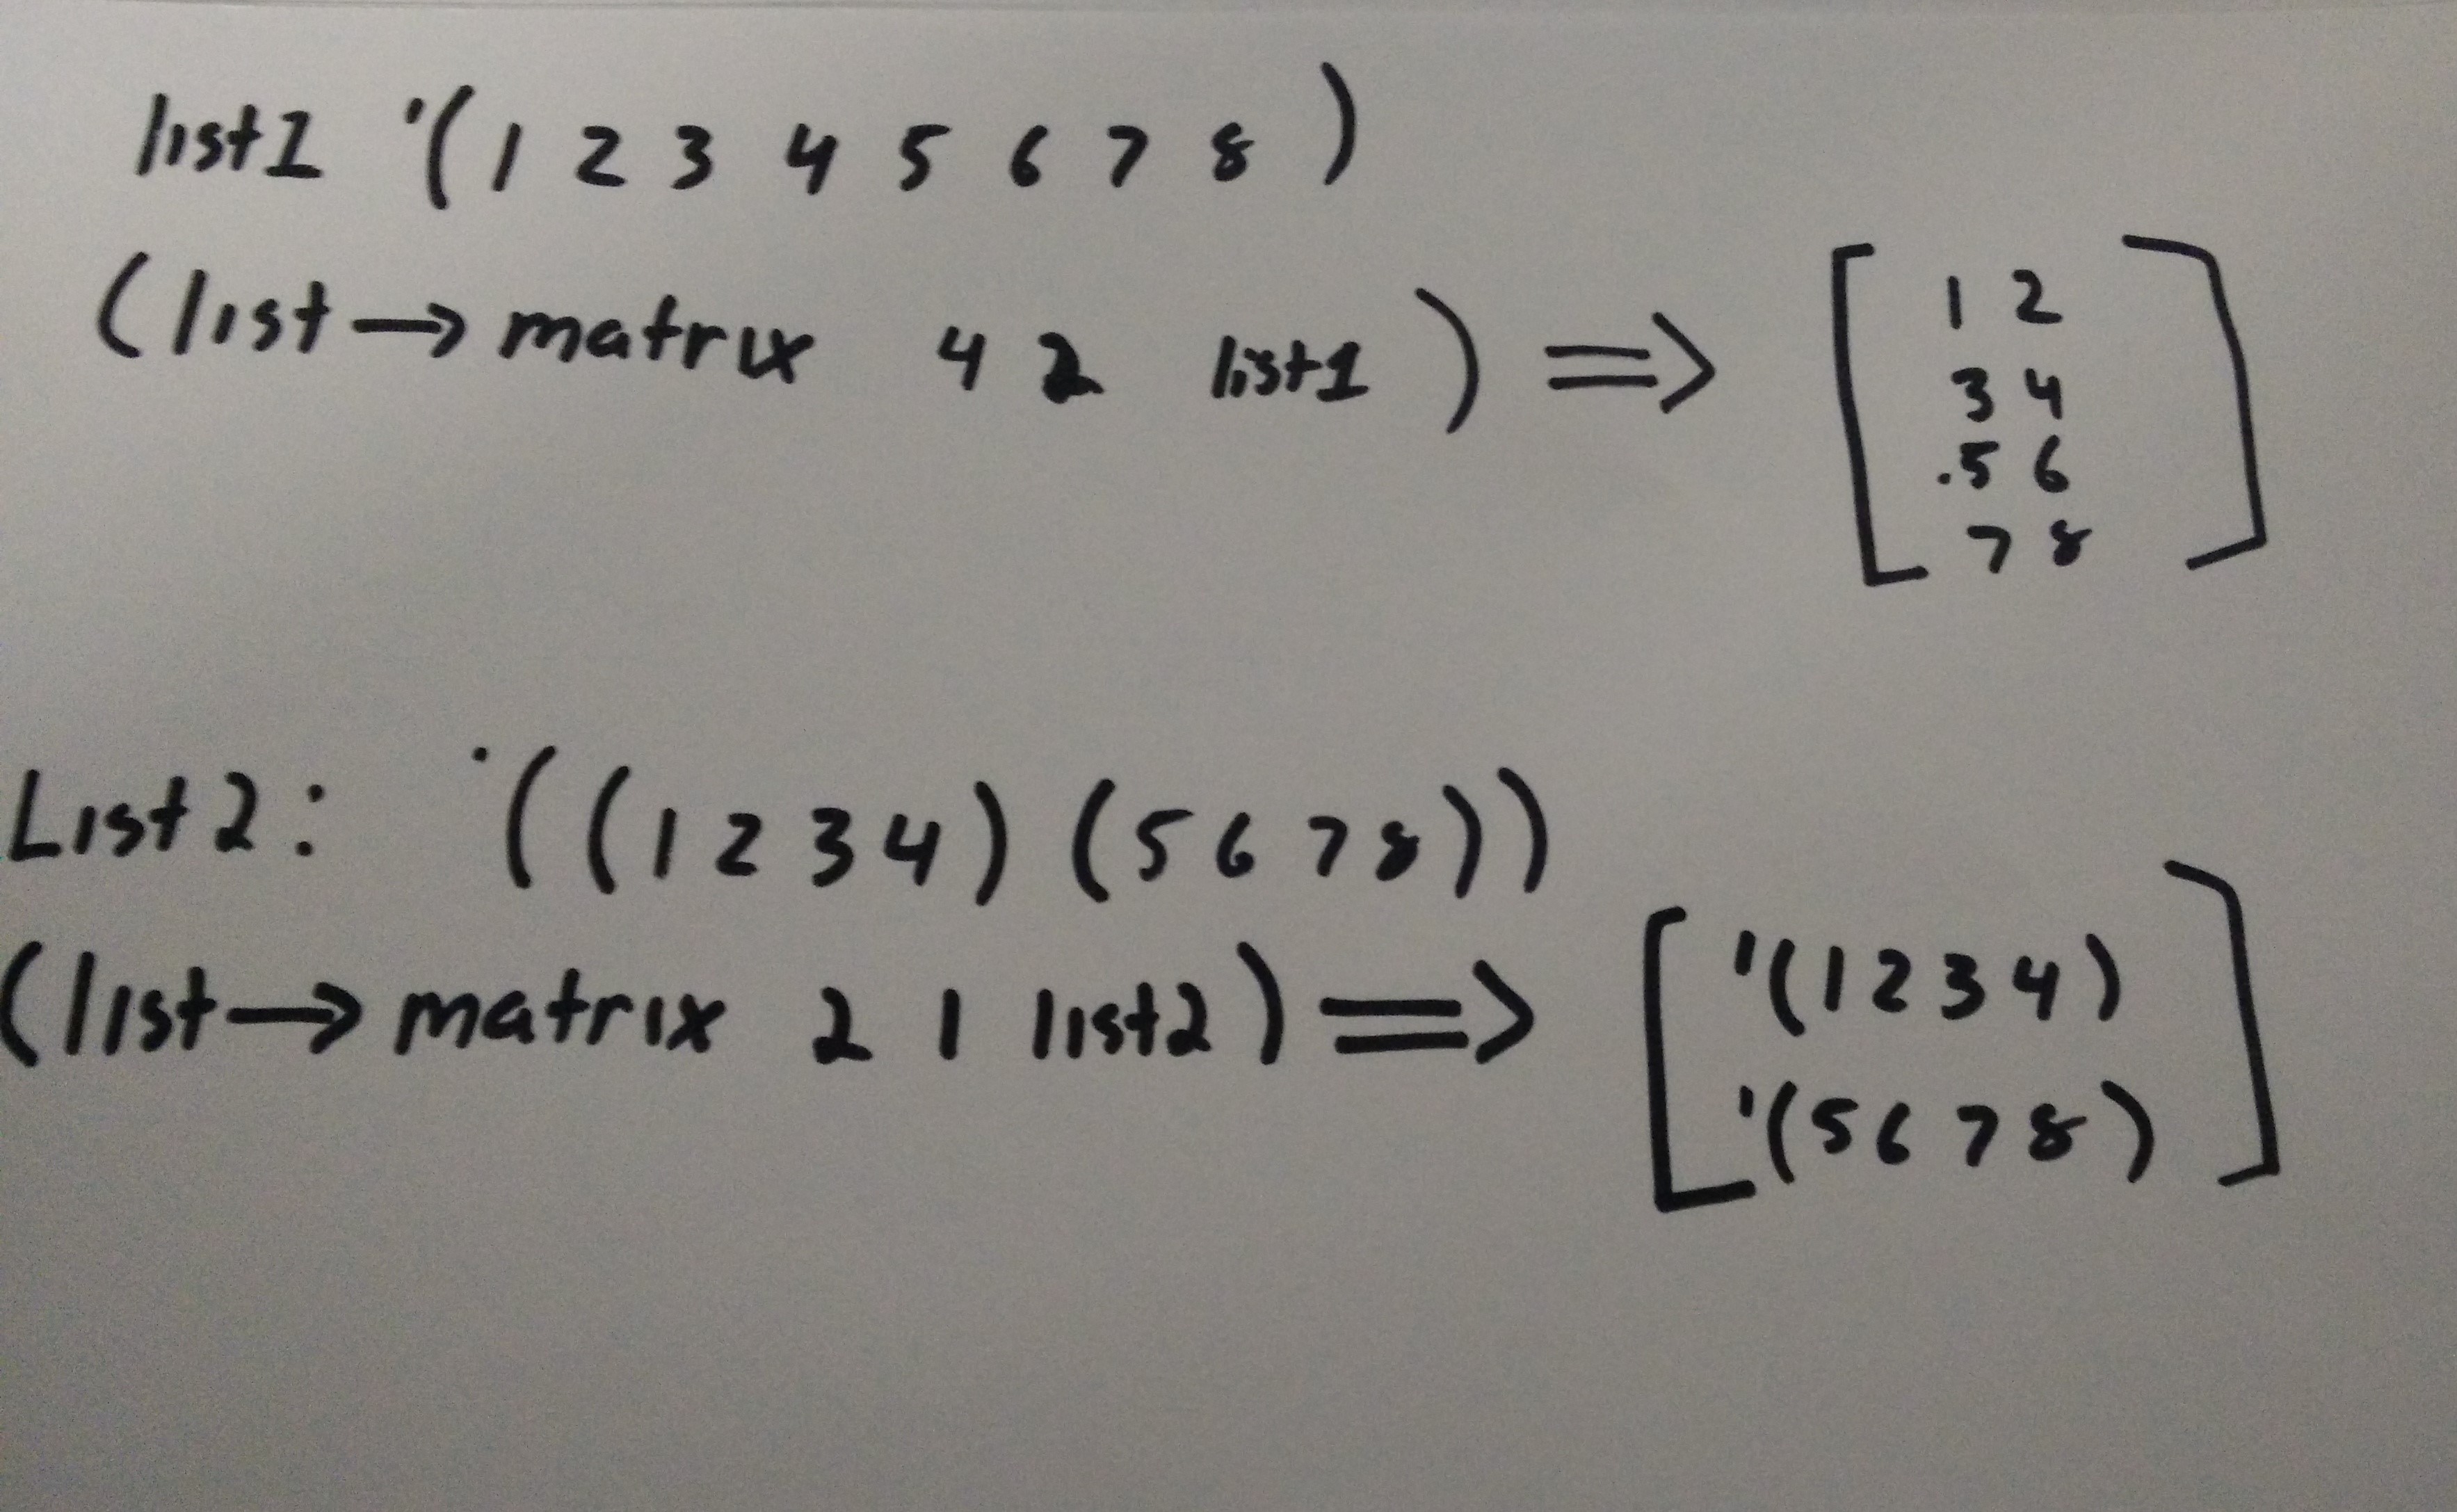 list1 '(1 2 3 4 5 6 7 8)
(list→matrix 4 2 list1) => [1 2
3 4
.5 6
7 8]
List2: '((1 2 3 4) (5 6 7 8))
(list→matrix 2 1 list2) => ['(1 2 3 4)
'(5 6 7 8)]